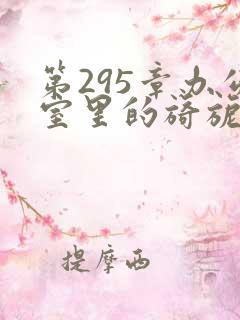 第295章办公
室里的旖旎
提摩西